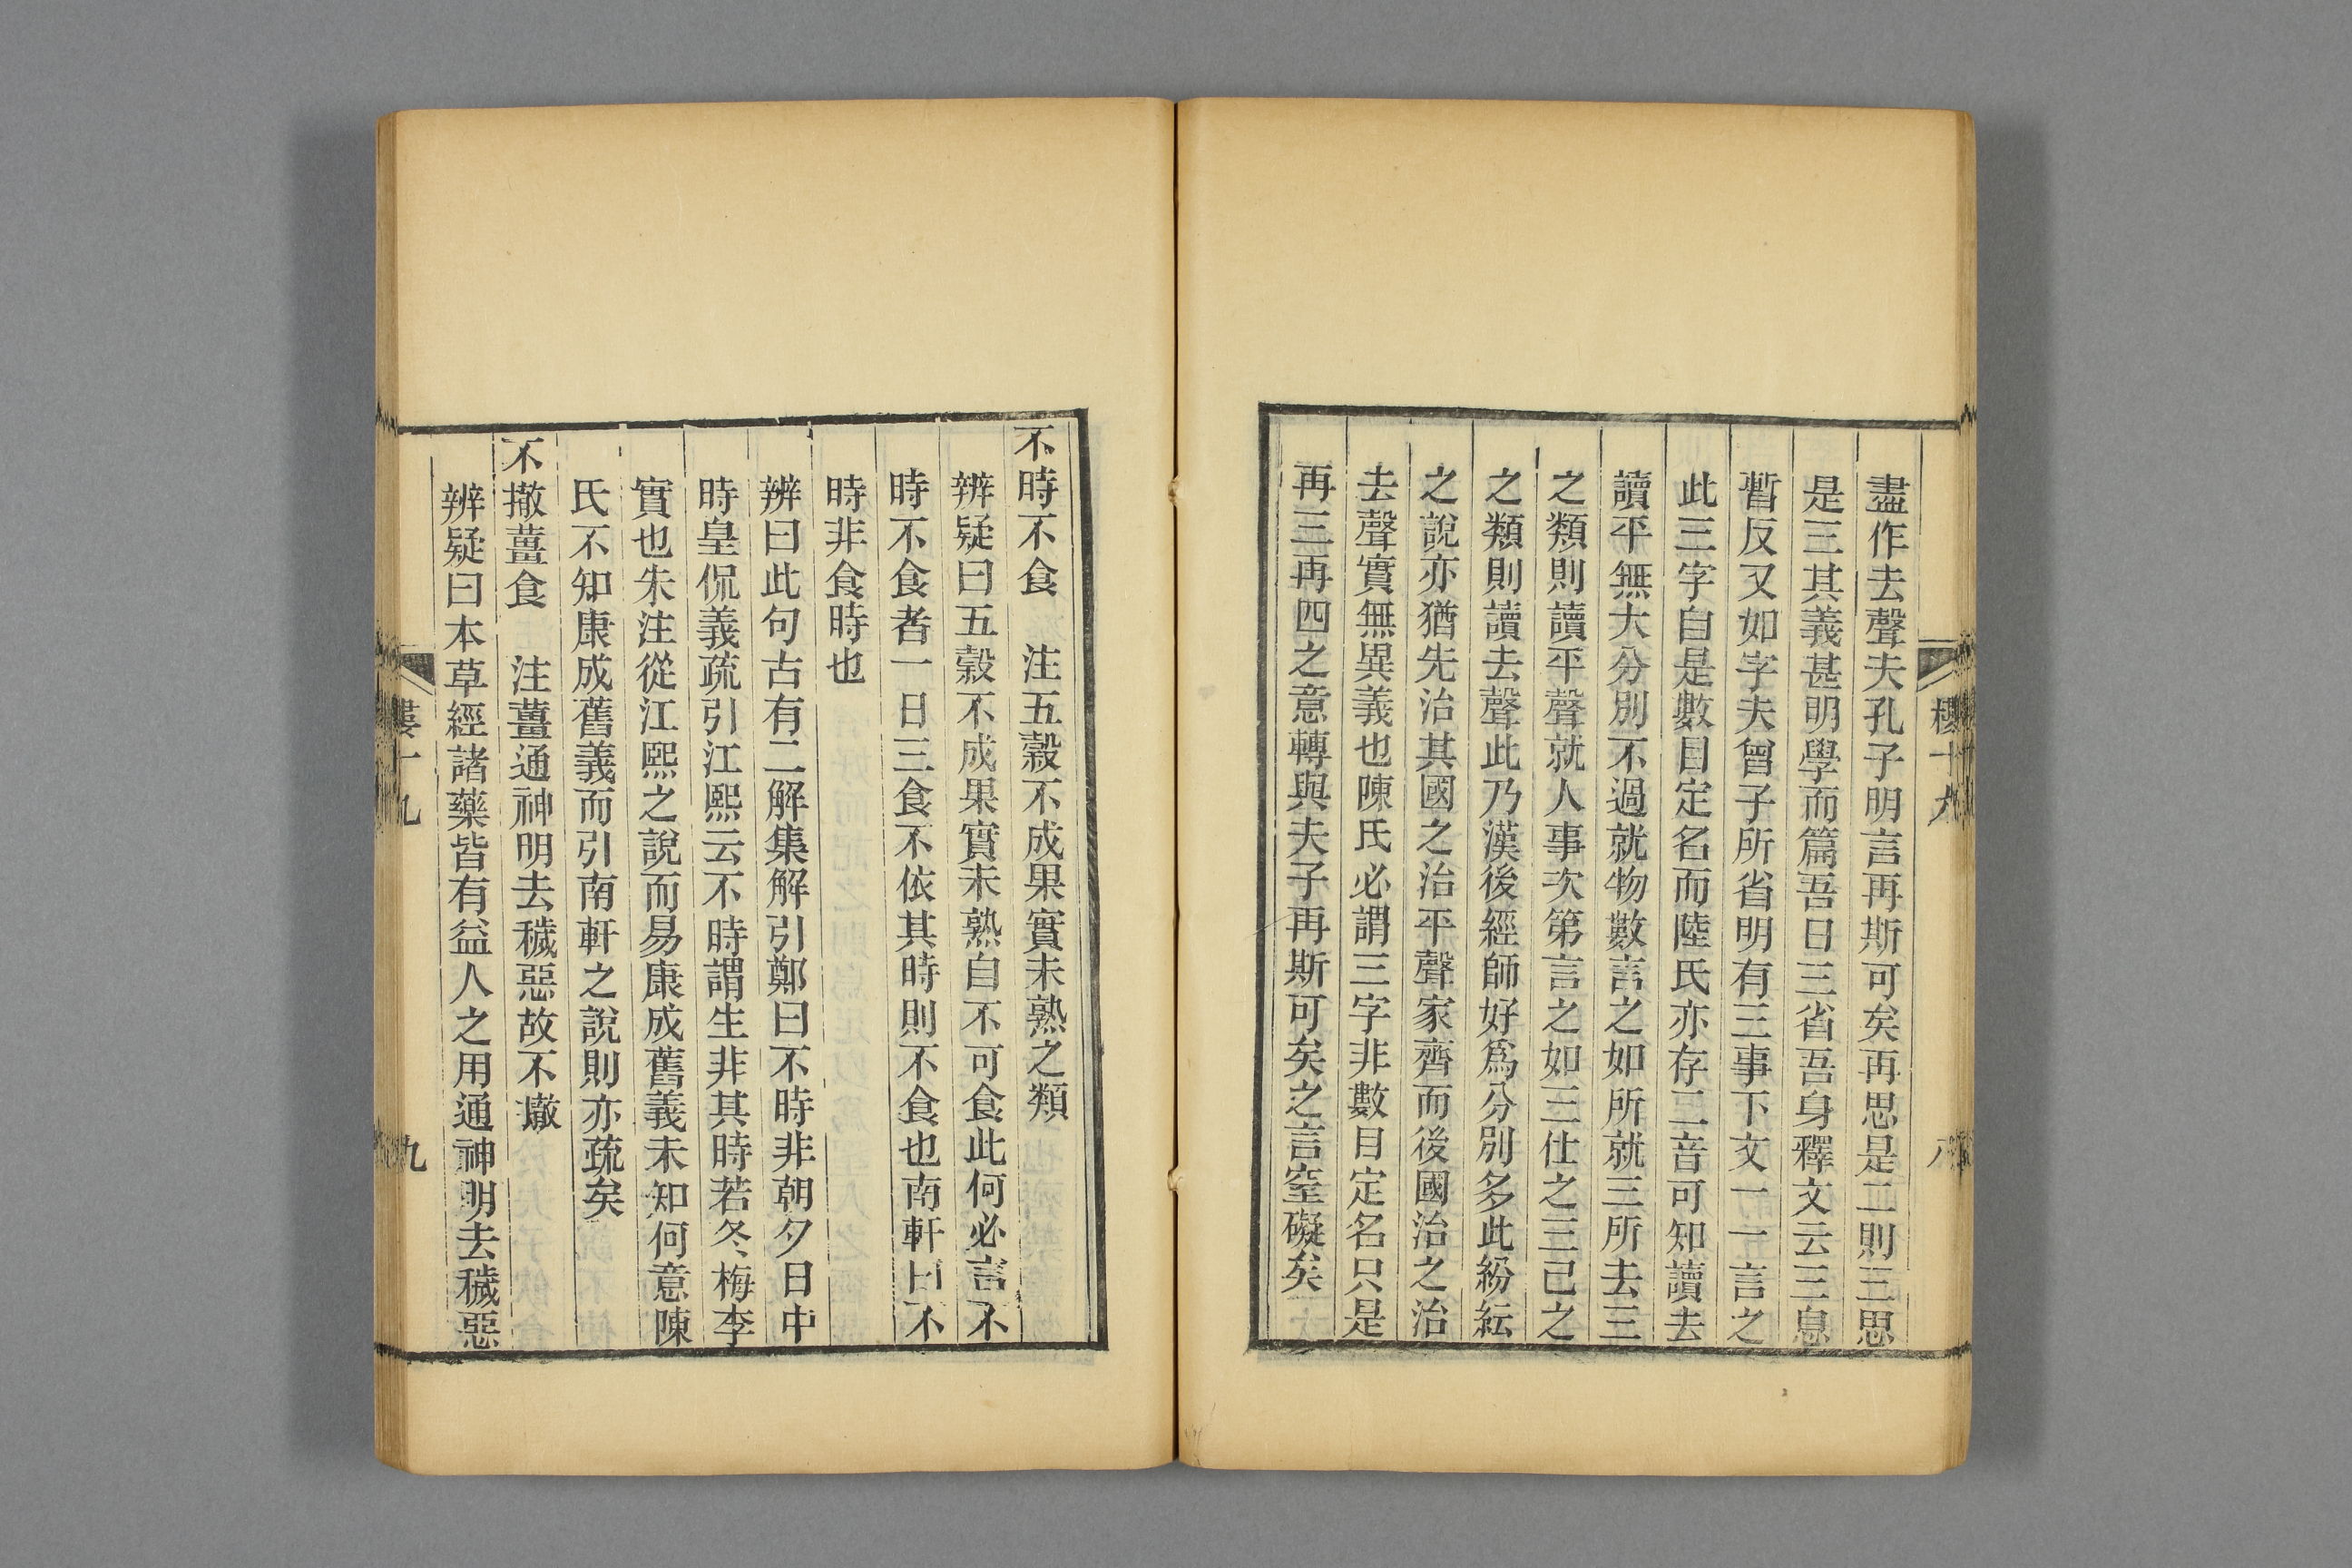 盡作去聲夫孔子明言再斯可矣再思是二則三思
是三其義甚明學而篇吾日三省吾身釋文云三息
暫反又如字夫曾子所省明有三事下文一一言之
此三字自是數目定名而陸氏亦存二音可知讀去
讀平無大分別不過就物數言之如所就三所去三
之類則讀平聲就人事次第言之如三仕之三己之
之類則讀去聲此乃漢後經師好爲分別多此紛紜
之說亦猶先治其國之治平聲家齊而後國治之治
去聲實無異義也陳氏必謂三字非數目定名只是
再三再四之意轉與夫子再斯可矣之言窒礙矣
不時不食 注五穀不成果實未熟之類
辨疑曰五穀不成果實未熟自不可食此何必言不
時不食者一日三食不依其時則不食也南軒曰不
時非食時也
辨曰此句古有二解集解引鄭曰不時非朝夕日中
時皇侃義疏引江熙云不時謂生非其時若冬梅李
實也朱注從江熙之說而易康成舊義未知何意陳
氏不知康成舊義而引南軒之說則亦疏矣
不撤薑食 注薑通神明去穢惡故不撤
辨疑曰本草經諸藥皆有益人之用通神明去穢惡
十九
九